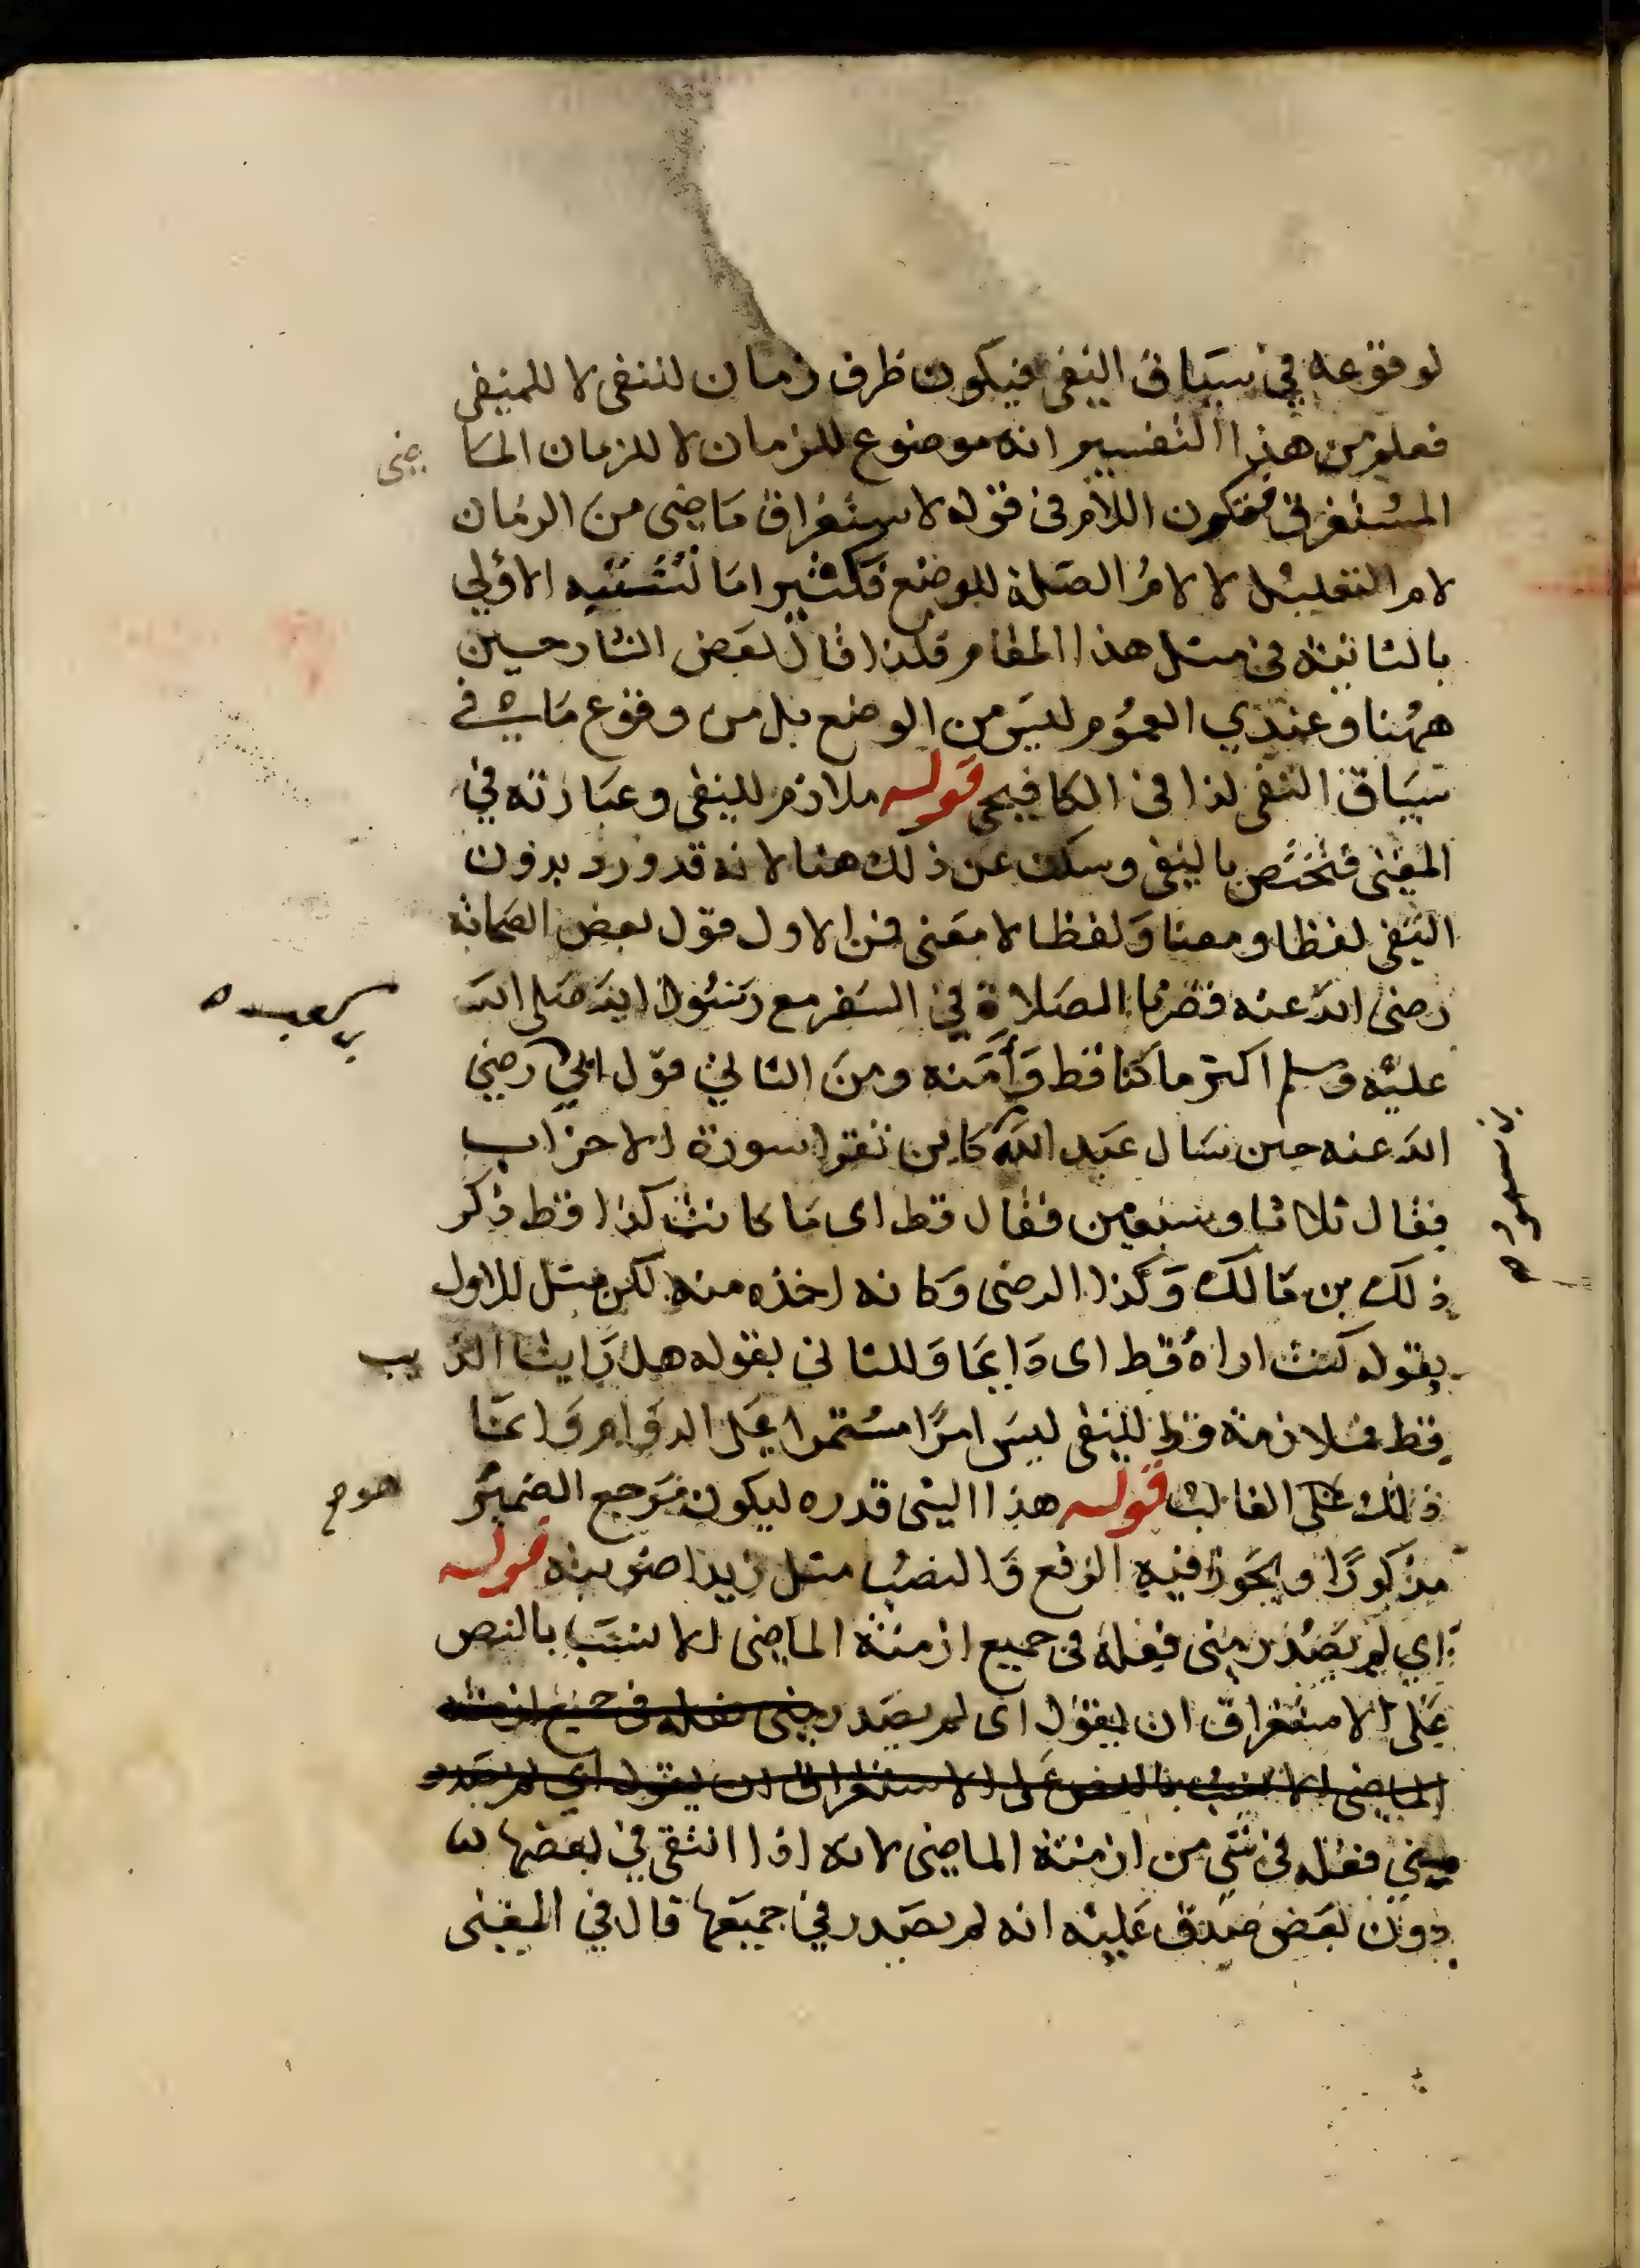 لوقوعه في سياق النفي فيكون ظرف زمان لننفي لا للمنفي
فعلم من هذا التفسير انه موضوع للزمان لا للزمان الما ضى
المستغرق فتكون اللام فى قوله لاستغراق ماضى من الزمان
لام التعليل لا لام الصلة للوضع فكثيرا ما تشتبه الاولي
بالثانية في مثل هذا المقام فلذا قال بعض الشارحين
ههنا وعندي العموم ليس من الوضع بل من وقوع في
سياق النفي لذا فى الكافيجي قوله ملازم للنفي وعبارته في
المغني فتختص بالنفي وسكت عن ذلك هنا لانه قد ورد بدون
النفي لفظا ومعنا ولفظا لا معنى فمن الاول قول بعض الصحابة
رضى الله عنه قصرنا الصلاة في السفر مع رسول الله صلى الله
عليه وسلم اكثر ما كنا قط وآمنه ومن الثاني قول ابي رضي
بن كعب
الله عنه حين سال عبد الله كاين تقرا سورة الاحزاب
بن مسعود
فقال ثلاثا وسبعين فقال قط اى ما كانت كذا قط ذكر
ذلك بن مالك وكذا الرضى وكانه اخذه منه لكن مثل للاول
بقوله كنت اراه قط اى دايما وللثاني بقوله هل رايت الذ يب
قط فملازمة قط للنفي ليس امرا مستمرا على الدوام وانما
ذلك على الغالب قوله هذا الشى قدره ليكون مرجع الضمير
مذكورا ويجوز فيه الرفع والنصب مثل زيدا ضربته قوله
اي لم يصدر منى فعله فى جميع ازمنة الماضى الانسب بالنص
على الاستغراق ان يقول اى لم يصدر منى فعله فى جميع ازمنة
الماضى الانسب بالنص على الاستغراق ان يقول اي لم يصدر
منى فعله فى شي من ازمنة الماضى لانه اذا انتفى في بعضها
دون بعض صدق عليه انه لم يصدر في جميعها قال في المغنى